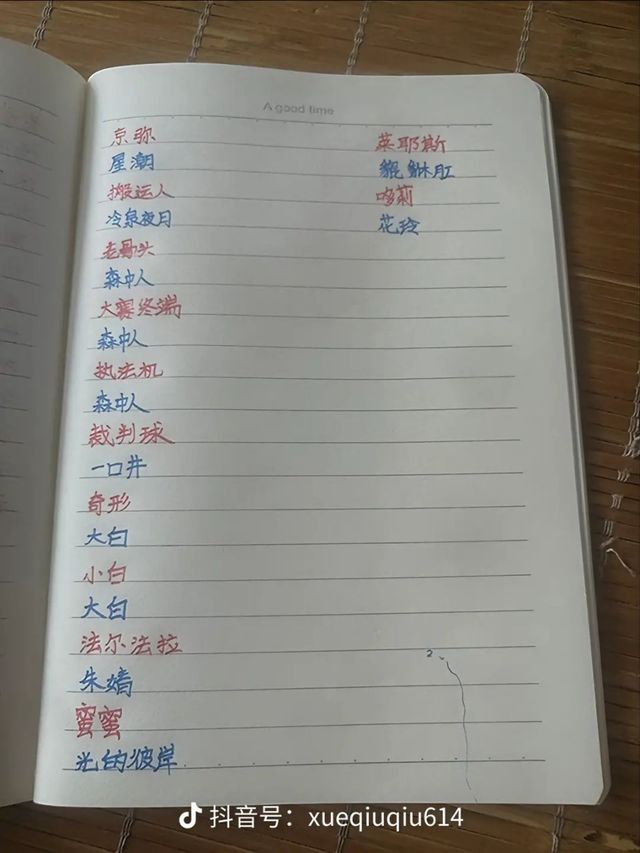 A good time
京弥
星潮
搬运人
冷泉夜月
老骨头
森中人
大赛终端
森中人
执法机
森中人
裁判球
一口井
奇形
大白
小白
大白
法尔法拉
朱嬌
蜜蜜
光的彼岸
莱耶斯
貔貅肛
哆莉
花玲
2
抖音号：xueqiuqiu614